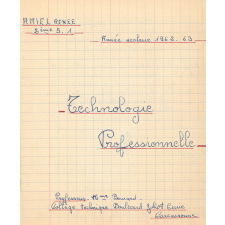 AMIEL RENÉE
2ème S. 1
Année scolaire 1962-63
Technologie
Professionnelle
Professeur: Mme
Collège Technique Boulevard
Carcassonne